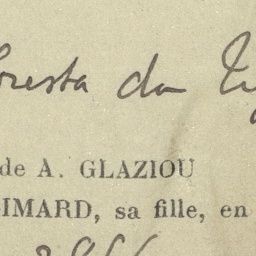 oresta da Tij
de A. GLAZIOU
IMARD, sa fille, en